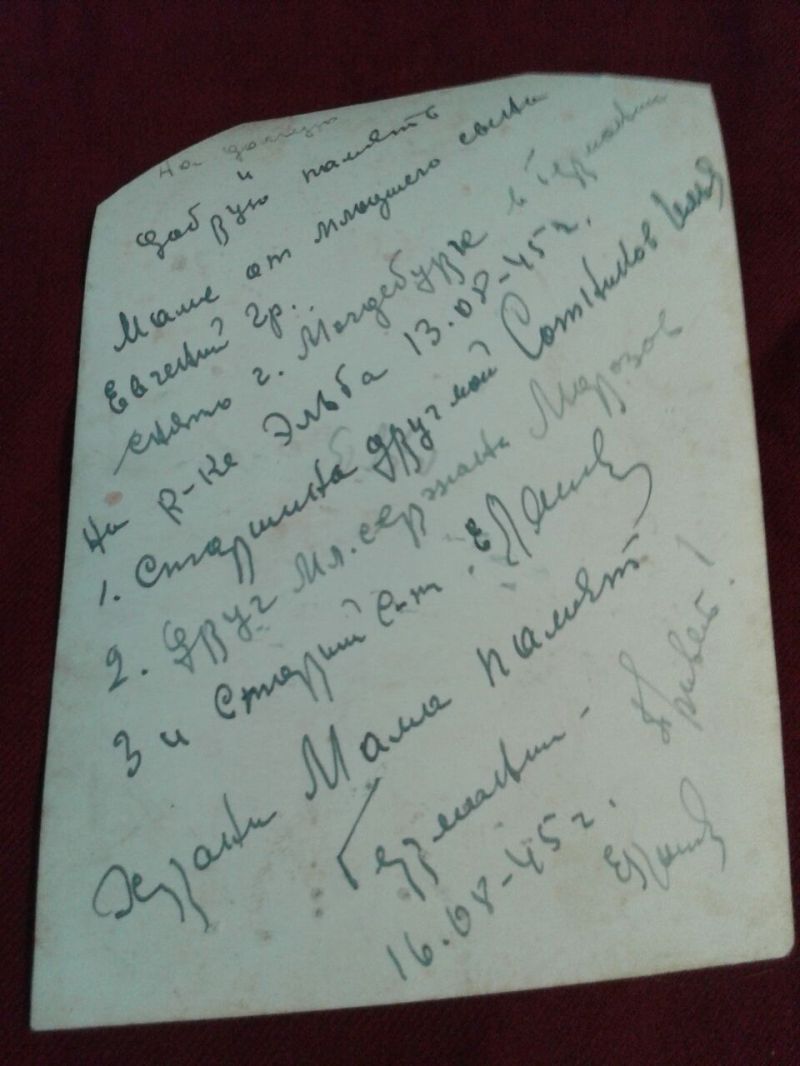 На долгую
и
добрую память
Маме от младшего сына
Евгений Гр.
снято г. Магдебурге в Германии
На р-ке Эльба 13.08-45 г.
1. Старшина друг мой Сотников Илья
2. Друг мл. сержант Морозов
3 и Старший с-т.
Храни Мама память
Германии - Привет!
16.08-45 г.